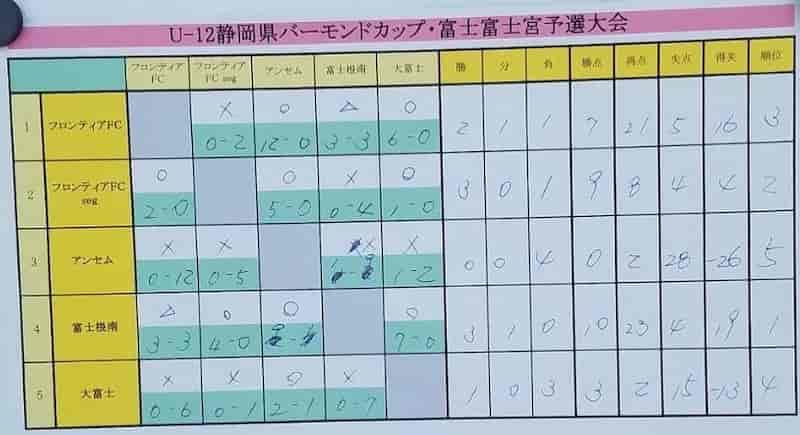 U-12静岡県バーモンドカップ・富士富士宮予選大会
フロンティアFC フロンティアFC seg アンセム 富士根南 大富士 勝 分 負 勝点 得点 失点 得失 順位
× ○ △ ○
1 フロンティアFC 0-2 12-0 3-3 6-0 2 1 1 7 21 5 16 3
○ ○ × ○
2 フロンティアFC seg 2-0 5-0 0-4 1-0 3 0 1 9 8 4 4 2
× × × ×
3 アンセム 0-12 0-5 1-2 0 0 4 0 2 28 -26 5
△ ○ ○ ○
4 富士根南 3-3 4-0 7-0 3 1 0 10 23 4 19 1
× × ○ ×
5 大富士 0-6 0-1 2-1 0-7 1 0 3 3 2 15 -13 4